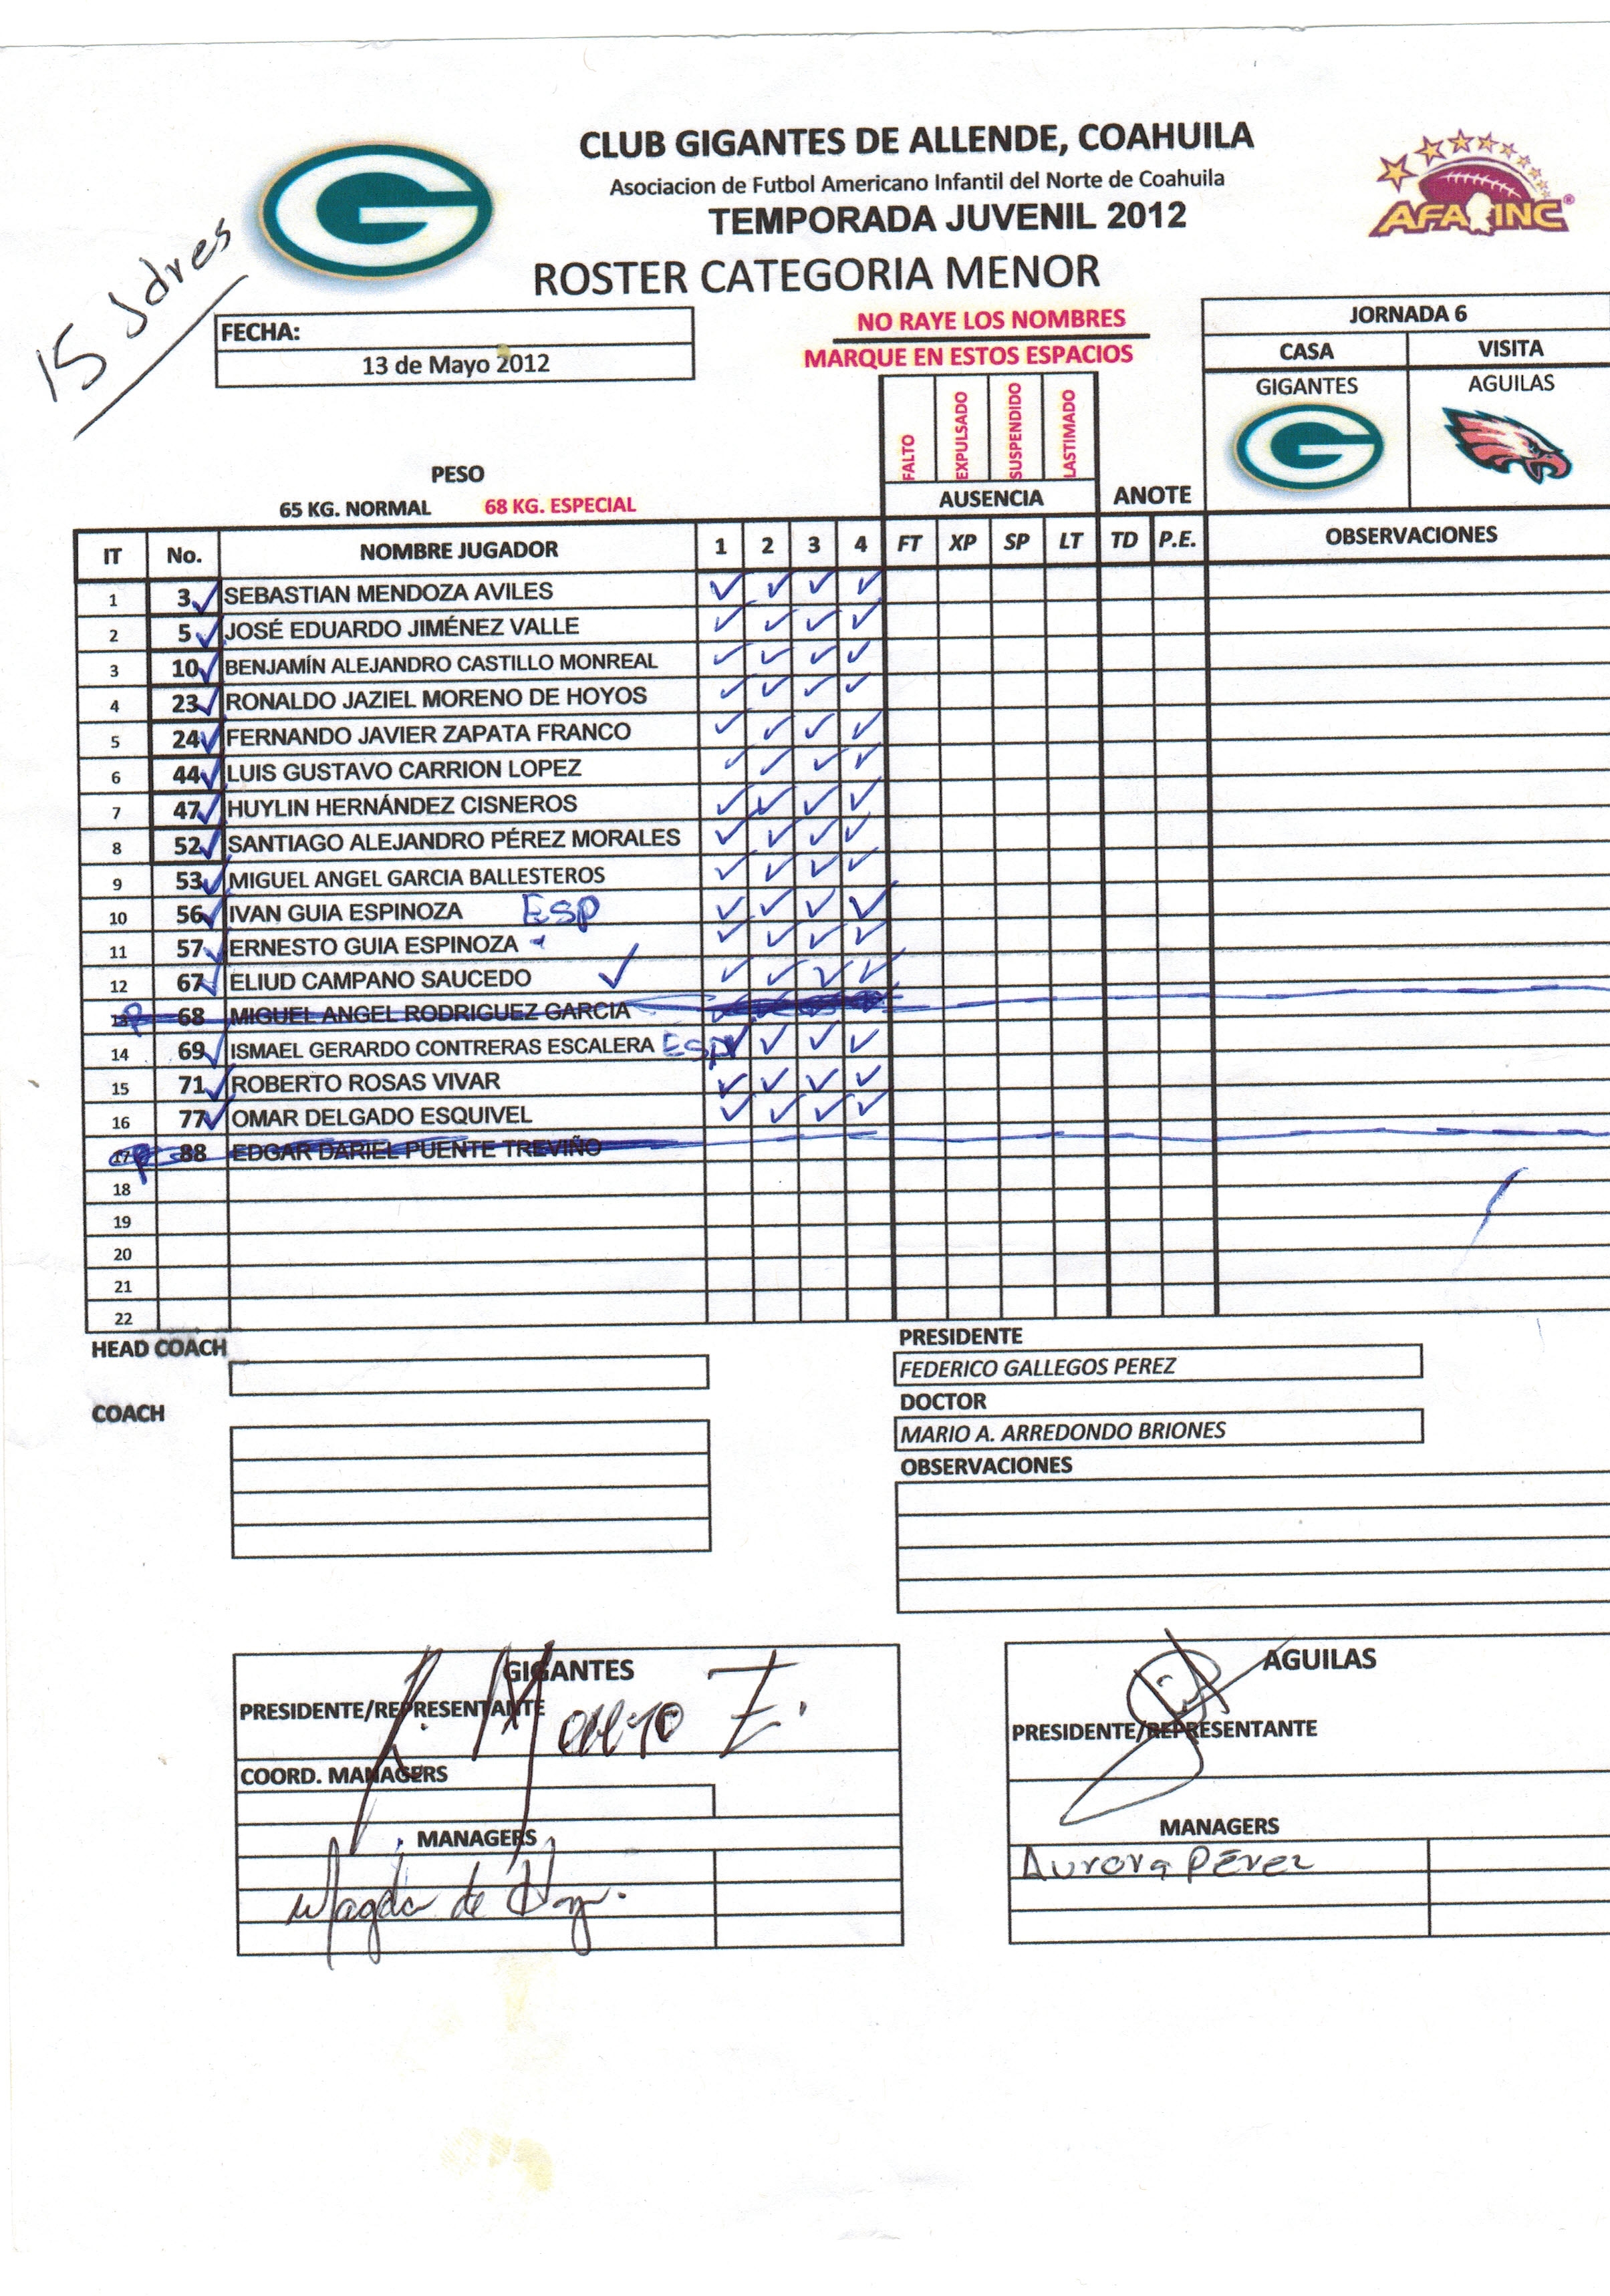 CLUB GIGANTES DE ALLENDE, COAHUILA
Asociacion de Futbol Americano Infantil del Norte de Coahuila
TEMPORADA JUVENIL 2012
ROSTER CATEGORIA MENOR
AFA INC®
15 Jdres
FECHA:
13 de Mayo 2012
NO RAYE LOS NOMBRES
MARQUE EN ESTOS ESPACIOS
JORNADA 6
CASA VISITA
GIGANTES AGUILAS
FALTO EXPULSADO SUSPENDIDO LASTIMADO
PESO
65 KG. NORMAL 68 KG. ESPECIAL
AUSENCIA ANOTE
IT No. NOMBRE JUGADOR 1 2 3 4 FT XP SP LT TD P.E. OBSERVACIONES
1 3 ✓ SEBASTIAN MENDOZA AVILES ✓ ✓ ✓ ✓
2 5 ✓ JOSÉ EDUARDO JIMÉNEZ VALLE ✓ ✓ ✓ ✓
3 10 ✓ BENJAMÍN ALEJANDRO CASTILLO MONREAL ✓ ✓ ✓ ✓
4 23 ✓ RONALDO JAZIEL MORENO DE HOYOS ✓ ✓ ✓ ✓
5 24 ✓ FERNANDO JAVIER ZAPATA FRANCO ✓ ✓ ✓ ✓
6 44 ✓ LUIS GUSTAVO CARRION LOPEZ ✓ ✓ ✓ ✓
7 47 ✓ HUYLIN HERNÁNDEZ CISNEROS ✓ ✓ ✓ ✓
8 52 ✓ SANTIAGO ALEJANDRO PÉREZ MORALES ✓ ✓ ✓ ✓
9 53 ✓ MIGUEL ANGEL GARCIA BALLESTEROS ✓ ✓ ✓ ✓
10 56 ✓ IVAN GUIA ESPINOZA Esp ✓ ✓ ✓ ✓
11 57 ✓ ERNESTO GUIA ESPINOZA ✓ ✓ ✓ ✓
12 67 ✓ ELIUD CAMPANO SAUCEDO ✓ ✓ ✓ ✓ ✓
13 68 MIGUEL ANGEL RODRIGUEZ GARCIA
14 69 ✓ ISMAEL GERARDO CONTRERAS ESCALERA Esp ✓ ✓ ✓ ✓
15 71 ✓ ROBERTO ROSAS VIVAR ✓ ✓ ✓ ✓
16 77 ✓ OMAR DELGADO ESQUIVEL ✓ ✓ ✓ ✓
17 88 EDGAR DARIEL PUENTE TREVIÑO
18
19
20
21
22
HEAD COACH
COACH
PRESIDENTE
FEDERICO GALLEGOS PEREZ
DOCTOR
MARIO A. ARREDONDO BRIONES
OBSERVACIONES
GIGANTES
PRESIDENTE/REPRESENTANTE
COORD. MANAGERS
MANAGERS
Magda de
AGUILAS
PRESIDENTE/REPRESENTANTE
MANAGERS
Aurora Pérez